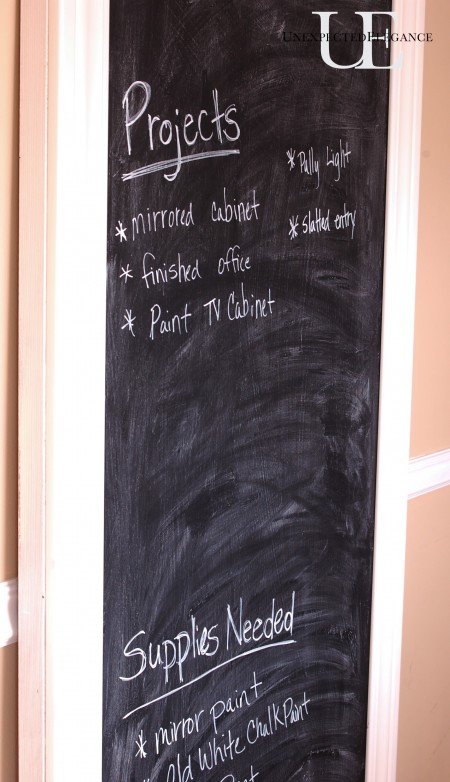 UNEXPECTEDELEGANCE
UE
Projects
* mirrored cabinet
* finished office
* Paint TV Cabinet
* Pully Light
* Slatted entry
Supplies Needed
* mirror paint
* Old White Chalk Paint
Paint